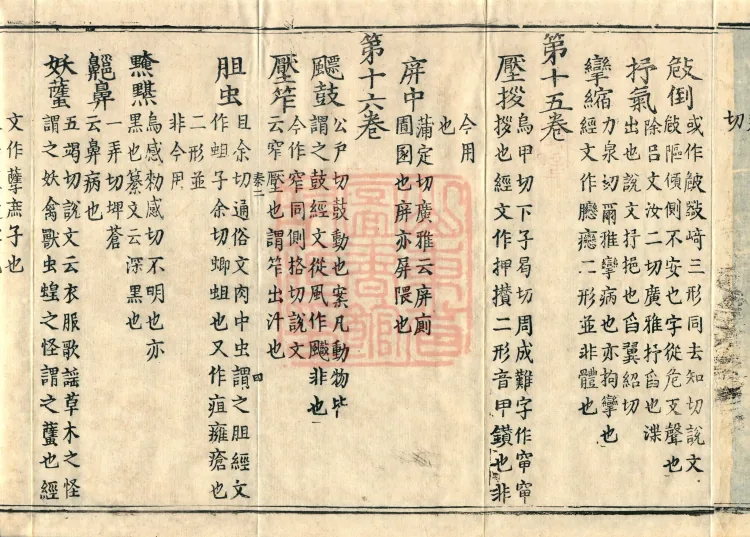 切
㩻倒
或作攲㩻﨑三形同去知切說文
㩻䧢傾側不安也字從危支聲也
抒氣
除呂文汝二切廣雅抒舀也渫
出也說文抒挹也舀翼紹切
攣縮
力泉切爾雅攣病也亦拘攣也
經文作癋二形並非體也
第十五卷
壓拶
烏甲切下子曷切周成難字作窜窜
拶也經文作押攢二形音甲鑽也非
今用
也
屏中
蒲定切廣雅云屏廁
圊圂也屏亦屏隈也
第十六卷
鼓
公戶切鼓動也案凡動物皆
謂之鼓經文從風作非也
壓笮
今作窄同側格切說文
云窄壓也謂笮出汁也
四
胆虫
且余切通俗文肉中虫謂之胆經文
作蛆子余切蝍蛆也又作疽癰瘡也
二形並
非今用
黤黮
烏感勑感切不明也亦
黑也纂文云深黑也
齆鼻
一弄切埤蒼
云鼻病也
妖蠥
五竭切說文云衣服歌謠草木之怪
謂之妖禽獸虫蝗之怪謂之蠥也經
文作孽庶子也